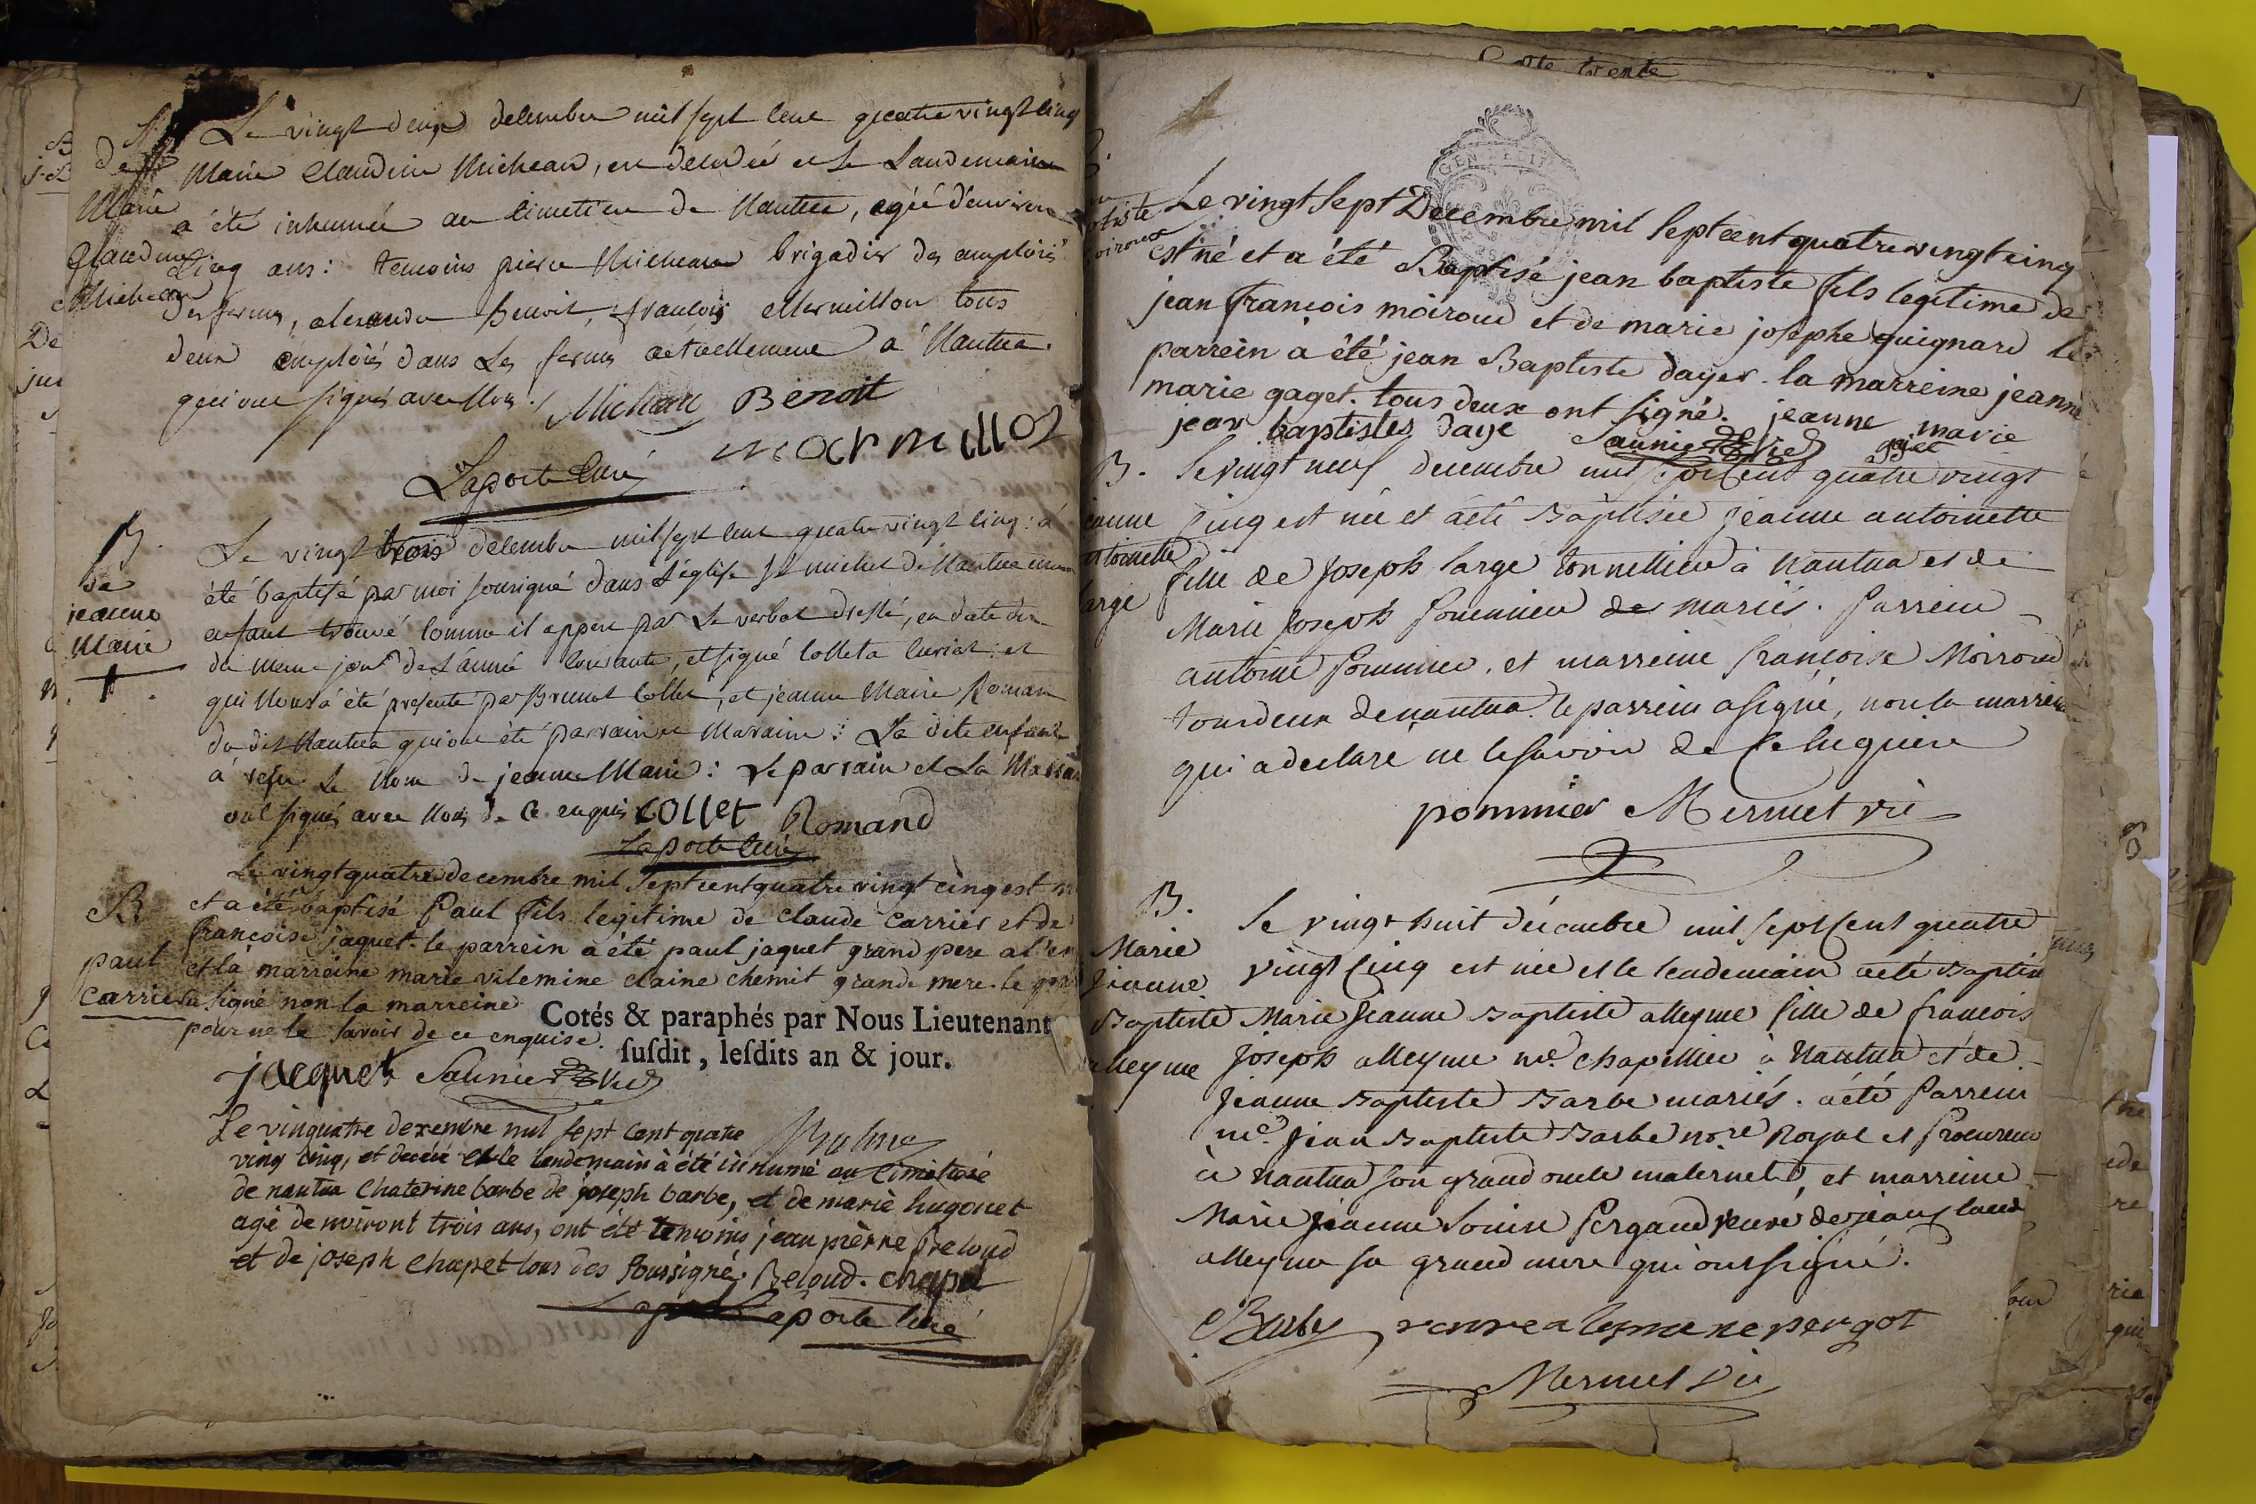 Le vingt deux decembre mil sept cent quatre vingt cinq
Marie Claudine Micheau, en decedeé et le Landemain
a été inhumée au cimetiere de Nantua, agée d'environ
cinq ans: temoins pierre Micheau brigadier des emploiés
des fermes, alexandre Benoit, françois Mermillon tous
deux emploiés dans les fermes actuellement a Nantua.
qui ont signés avec Nous.
Micheau Benoit
marmillot
Laporte Curé
De
Marie
Claudine
Micheau
B.
de
jeanne
Marie
Le vingt trois decembre mil sept cent quatre vingt cinq: à
été baptisé par moi soussigné dans L'église St michel de Nantua un
enfant trouvé comme il appert par Le verbal dressé, en date du
du meme jour de L'année courante, et signé Colleta Curiat: et
qui Nous à été presenté par Brunot Collet, et jeanne Marie Roman
du dit Nantua qui ont été parrain et Maraine: La dite enfant
a reçu Le Nom de jeanne Marie: Le parrain et La Marraine
ont signés avec Nous de Ce enquis Collet Romand
Laporte Curé
B
paul
Carrier
Le vingt quatre decembre mil sept cent quatre vingt cinq est né
et a été baptisé Paul fils legitime de Claude Carrier et de
françoise jaquet. le parrein a été paul jaquet grand pere
et la marreine marie vilemine claine chemit grande mere. le
a signé non la marreine
pour ne le savoir de ce enquise.
Cotés & paraphés par Nous Lieutenant
susdit, lesdits an & jour.
jacquet Saunier Vic
Le vinquatre dexembre mil sept cent quatre
ving cinq, et decéde et le lendemain à été innumé au cimetiere
de nantua Chaterine barbe de joseph barbe, et de marie hugonet
agé denviront trois ans, ont été temoins jean pièrre Beloud
et de joseph Chapet tous des soussigné. Beloud. chapel
Laporte Curé
Cotte trente
Le vingt sept Decembre mil sept cent quatre vingt cinq
est né et a été Baptisé jean baptiste fils legitime de
jean françois moiroud et de marie josephe guignard le
parrein à été jean Baptiste dayer. la marreine jeanne
marie gaget. tous deux ont signé. jeanne marie
jean baptistes daye Saunier Vic gajet
B.
jeanne
antoinette
large
le vingt neuf decembre mil sept cent quatre vingt
cinq est née et a été Baptisée jeanne antoinette
fille de joseph large tonnellier à Nantua et de
Marie joseph pommier de mariés. Parrein
antoine pommier, et marreine françoise Moiroud
tous deux de nantua. le parrein a signé, non la marreine
qui a declaré ne le savoir de ce enquise
pommier Mermet vic
B.
Marie
jeanne
Baptiste
alleyme
le vingt huit décembre mil sept cent quatre
vingt cinq est née et le lendemain a été Baptisé
Marie jeanne Baptiste alleyme fille de françois
joseph alleyme me. chapellier à Nantua et de
jeanne Baptiste Barbe mariés. a été Parrein
me. jean Baptiste Barbe nore Royal et Procureur
à Nantua son grand oncle maternel, et marreine
Marie jeanne Louise Pergaud veuve de jean
alleyme sa grand mere qui ont signé.
Barbe veuve alesmene pergot
Mermet Vic